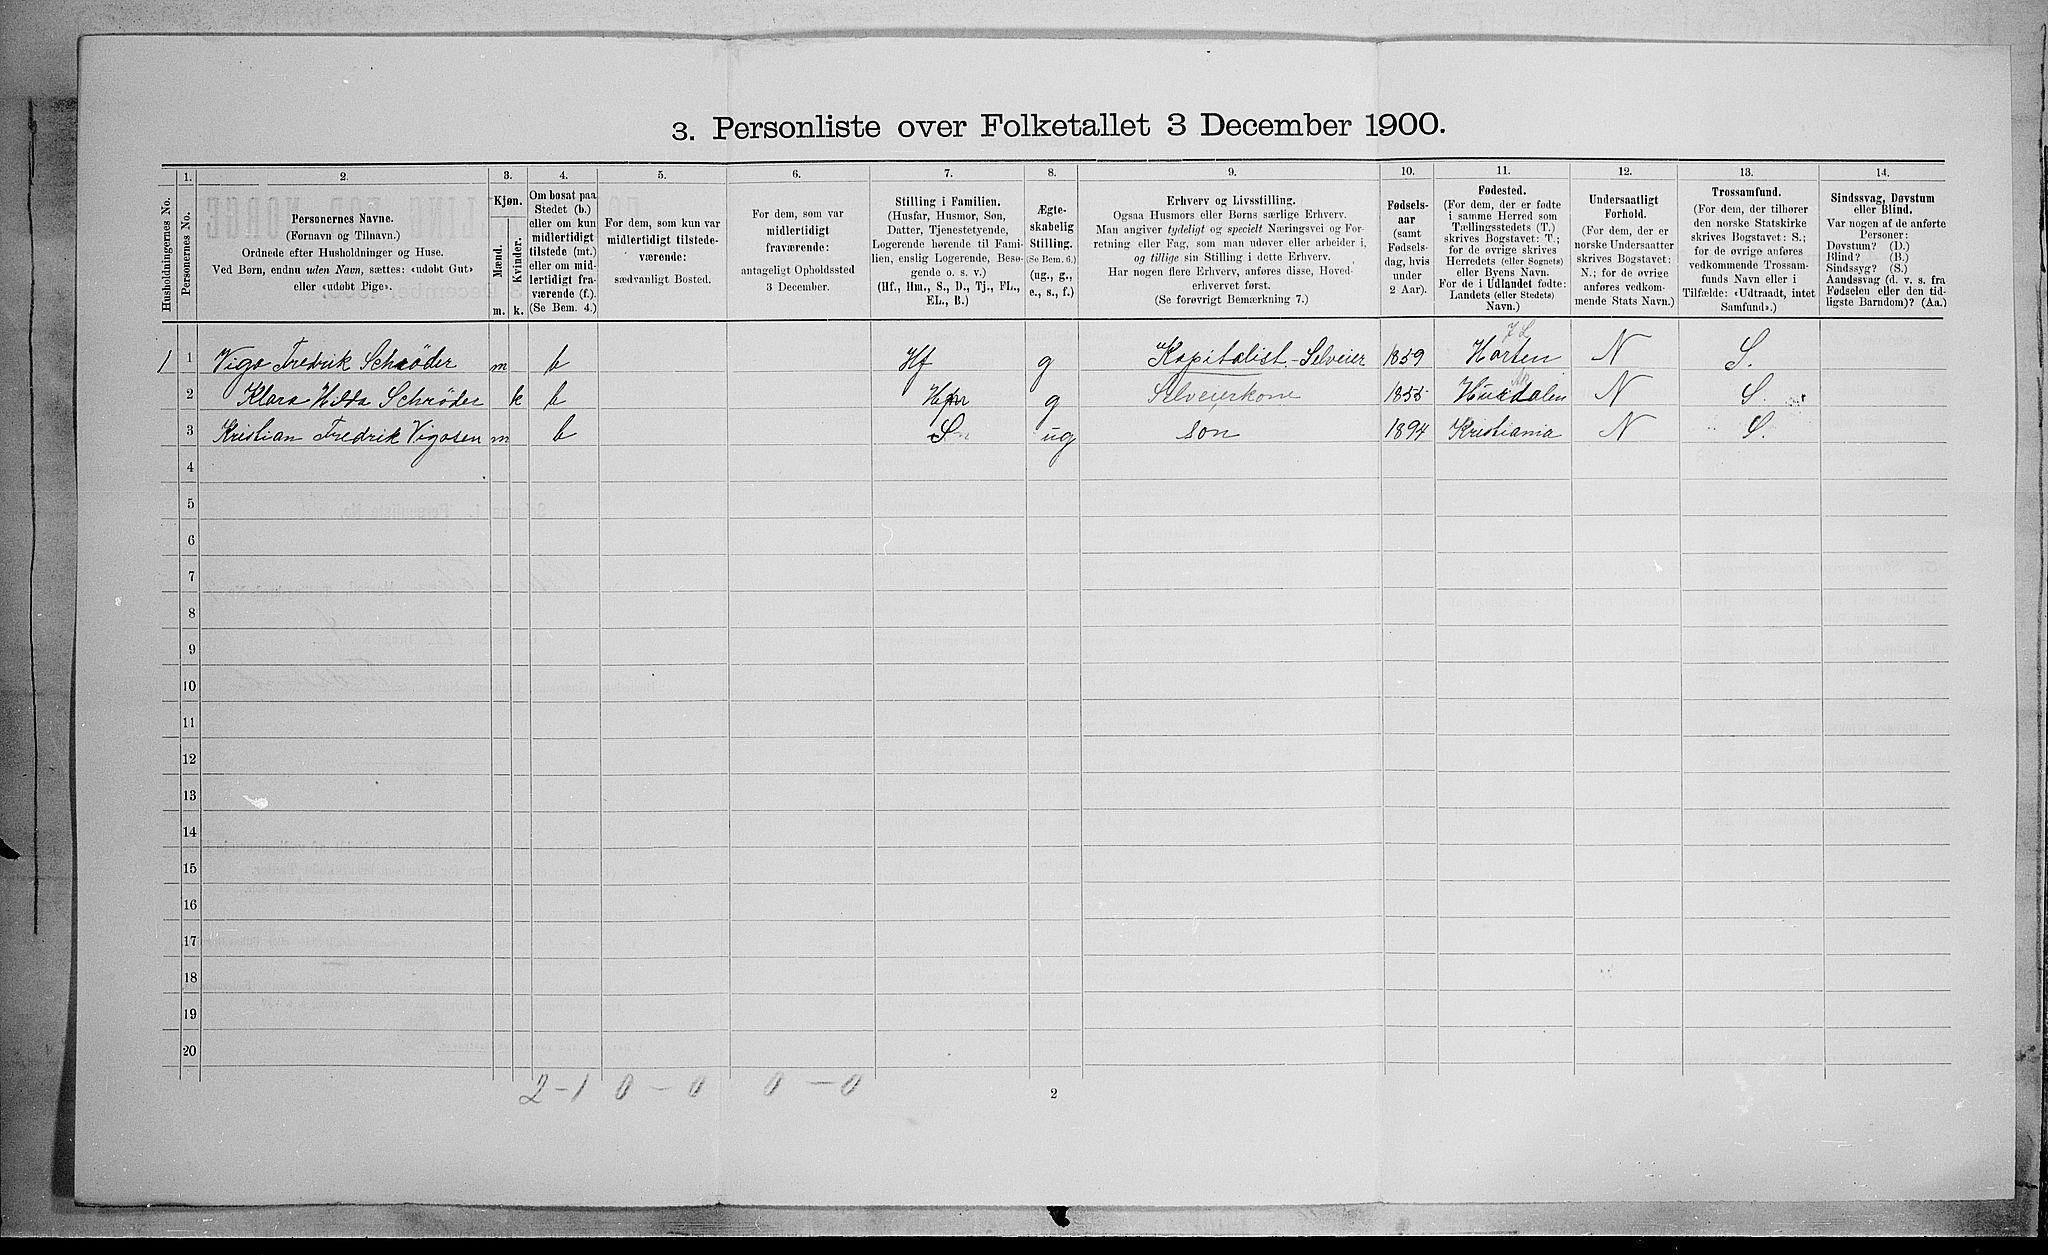 3. Personliste over Folketallet 3 December 1900.
1. 2. 3. 4. 5. 6. 7. 8. 9. 10. 11. 12. 13. 14.
Husholdningernes No.
Personernes No.
Personernes Navne.
(Fornavn og Tilnavn.)
Ordnede efter Husholdninger og Huse.
Ved Børn, endnu uden Navn, sættes: «udøbt Gut»
eller «udøbt Pige».
Kjøn.
Mænd.
Kvinder.
m. k.
Om bosat paa
Stedet (b.)
eller om kun
midlertidigt
tilstede (mt.)
eller om mid-
lertidigt fra-
værende (f.).
(Se Bem. 4.)
For dem, som kun var
midlertidigt tilstede-
værende:
sædvanligt Bosted.
For dem, som var
midlertidigt
fraværende:
antageligt Opholdssted
3 December.
Stilling i Familien.
(Husfar, Husmor, Søn,
Datter, Tjenestetyende,
Logerende hørende til Fami-
lien, enslig Logerende, Besø-
gende o. s. v.)
(Hf., Hm., S., D., Tj., FL.,
EL., B.)
Ægte-
skabelig
Stilling.
(Se Bem. 6.)
(ug., g.,
e., s., f.)
Erhverv og Livsstilling.
Ogsaa Husmors eller Børns særlige Erhverv.
Man angiver tydeligt og specielt Næringsvei og For-
retning eller Fag, som man udøver eller arbeider i,
og tillige sin Stilling i dette Erhverv.
Har nogen flere Erhverv, anføres disse, Hoved-
erhvervet først.
(Se forøvrigt Bemærkning 7.)
Fødsels-
aar
(samt
Fødsels-
dag, hvis
under
2 Aar).
Fødested.
(For dem, der er fødte
i samme Herred som
Tællingsstedets (T.)
skrives Bogstavet: T.;
for de øvrige skrives
Herredets (eller Sognets)
eller Byens Navn.
For de i Udlandet fødte:
Landets (eller Stedets)
Navn.)
Undersaatligt
Forhold.
(For dem, der er
norske Undersaatter
skrives Bogstavet:
N.; for de øvrige
anføres vedkom-
mende Stats Navn.)
Trossamfund.
(For dem, der tilhører
den norske Statskirke
skrives Bogstavet: S.;
for de øvrige anføres
vedkommende Trossam-
funds Navn eller i
Tilfælde: «Udtraadt, intet
Samfund».)
Sindssvag, Døvstum
eller Blind.
Var nogen af de anførte
Personer:
Døvstum? (D.)
Blind? (B.)
Sindssyg? (S.)
Aandssvag (d. v. s. fra
Fødselen eller den tid-
ligste Barndom)? (Aa.)
1 1 Vigo Fredrik Schrøder m b Hf g Kapitalist-Selveier 1859 Horten N S.
2 Klara Hilda Schrøder k b Hm g Selveierkone 1855 Hurdalen N S.
3 Kristian Fredrik Vigosen m b S ug Søn 1894 Kristiania N S.
4
5
6
7
8
9
10
11
12
13
14
15
16
17
18
19
20
2-1 0-0 0-0
2